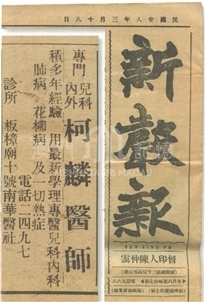 民國廿八年三月十八日
新聲報
SUN SING PO
督印人陳仲靄
專門 兒科 內外
柯麟醫師
積多年經驗 用最新學理專醫兒科內科
肺病 花柳病 及一切熱症
電話二四九七
診所 板樟廟十號南華醫社